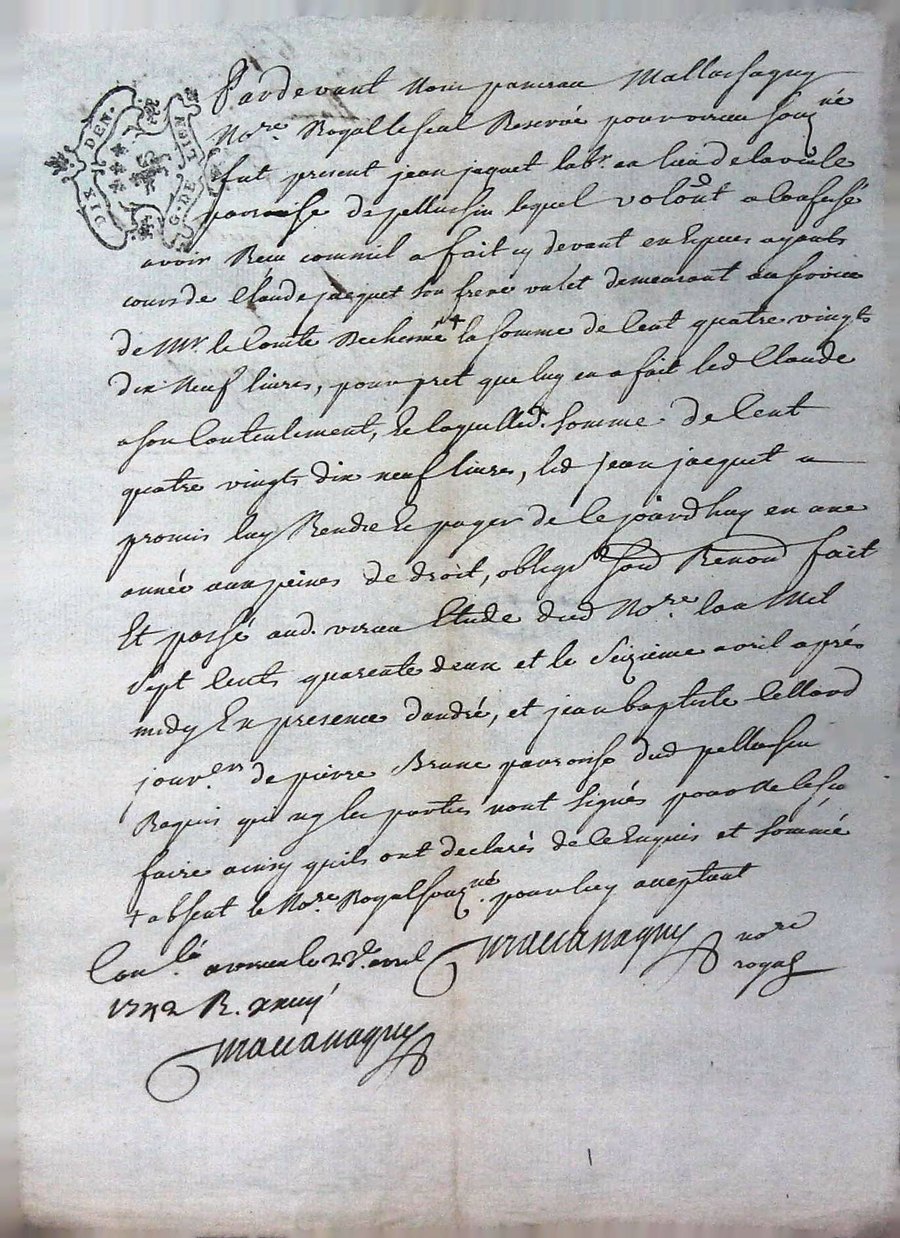 DIX DEN.
G. DE LION
Pardevant Nous
No.re Royal le seul Reservé pour virieu souz.né
fut present jean jaquet lab.r en lieu de
parroisse de pellussin lequel volont.t a confessé
avoir Receu comme il a fait cy devant en Espuces ayants
cours de Claude jacquet son frere valet demeurant au service
de Mr. le Comte + la somme de Cent quatre vingts
dix Neuf livres, pour pret que luy en a fait led Claude
a son Contentement, Et laquelled. Somme de Cent
quatre vingts dix neuf livres, led jean jacquet a
promis luy Rendre Et payer de cejourdhuy en une
année aux peines de droit, oblig.on Soud Renond fait
Et passé aud. virieu Etude dud No.re l'an Mil
Sept Cents quarente deux et le Seizieme avril aprés
midy En presence d'andré, et jean baptiste
jour.ers de pierre Brune parroisse dud pellussin
Requis qui ny les parties n'ont signés pour ne le sc.
faire ainsy quils ont declarés de ce Enquis et sommé
+ absent le No.re Royal souz.né pour luy aceptant
avril
1742 R.
no.re
royal